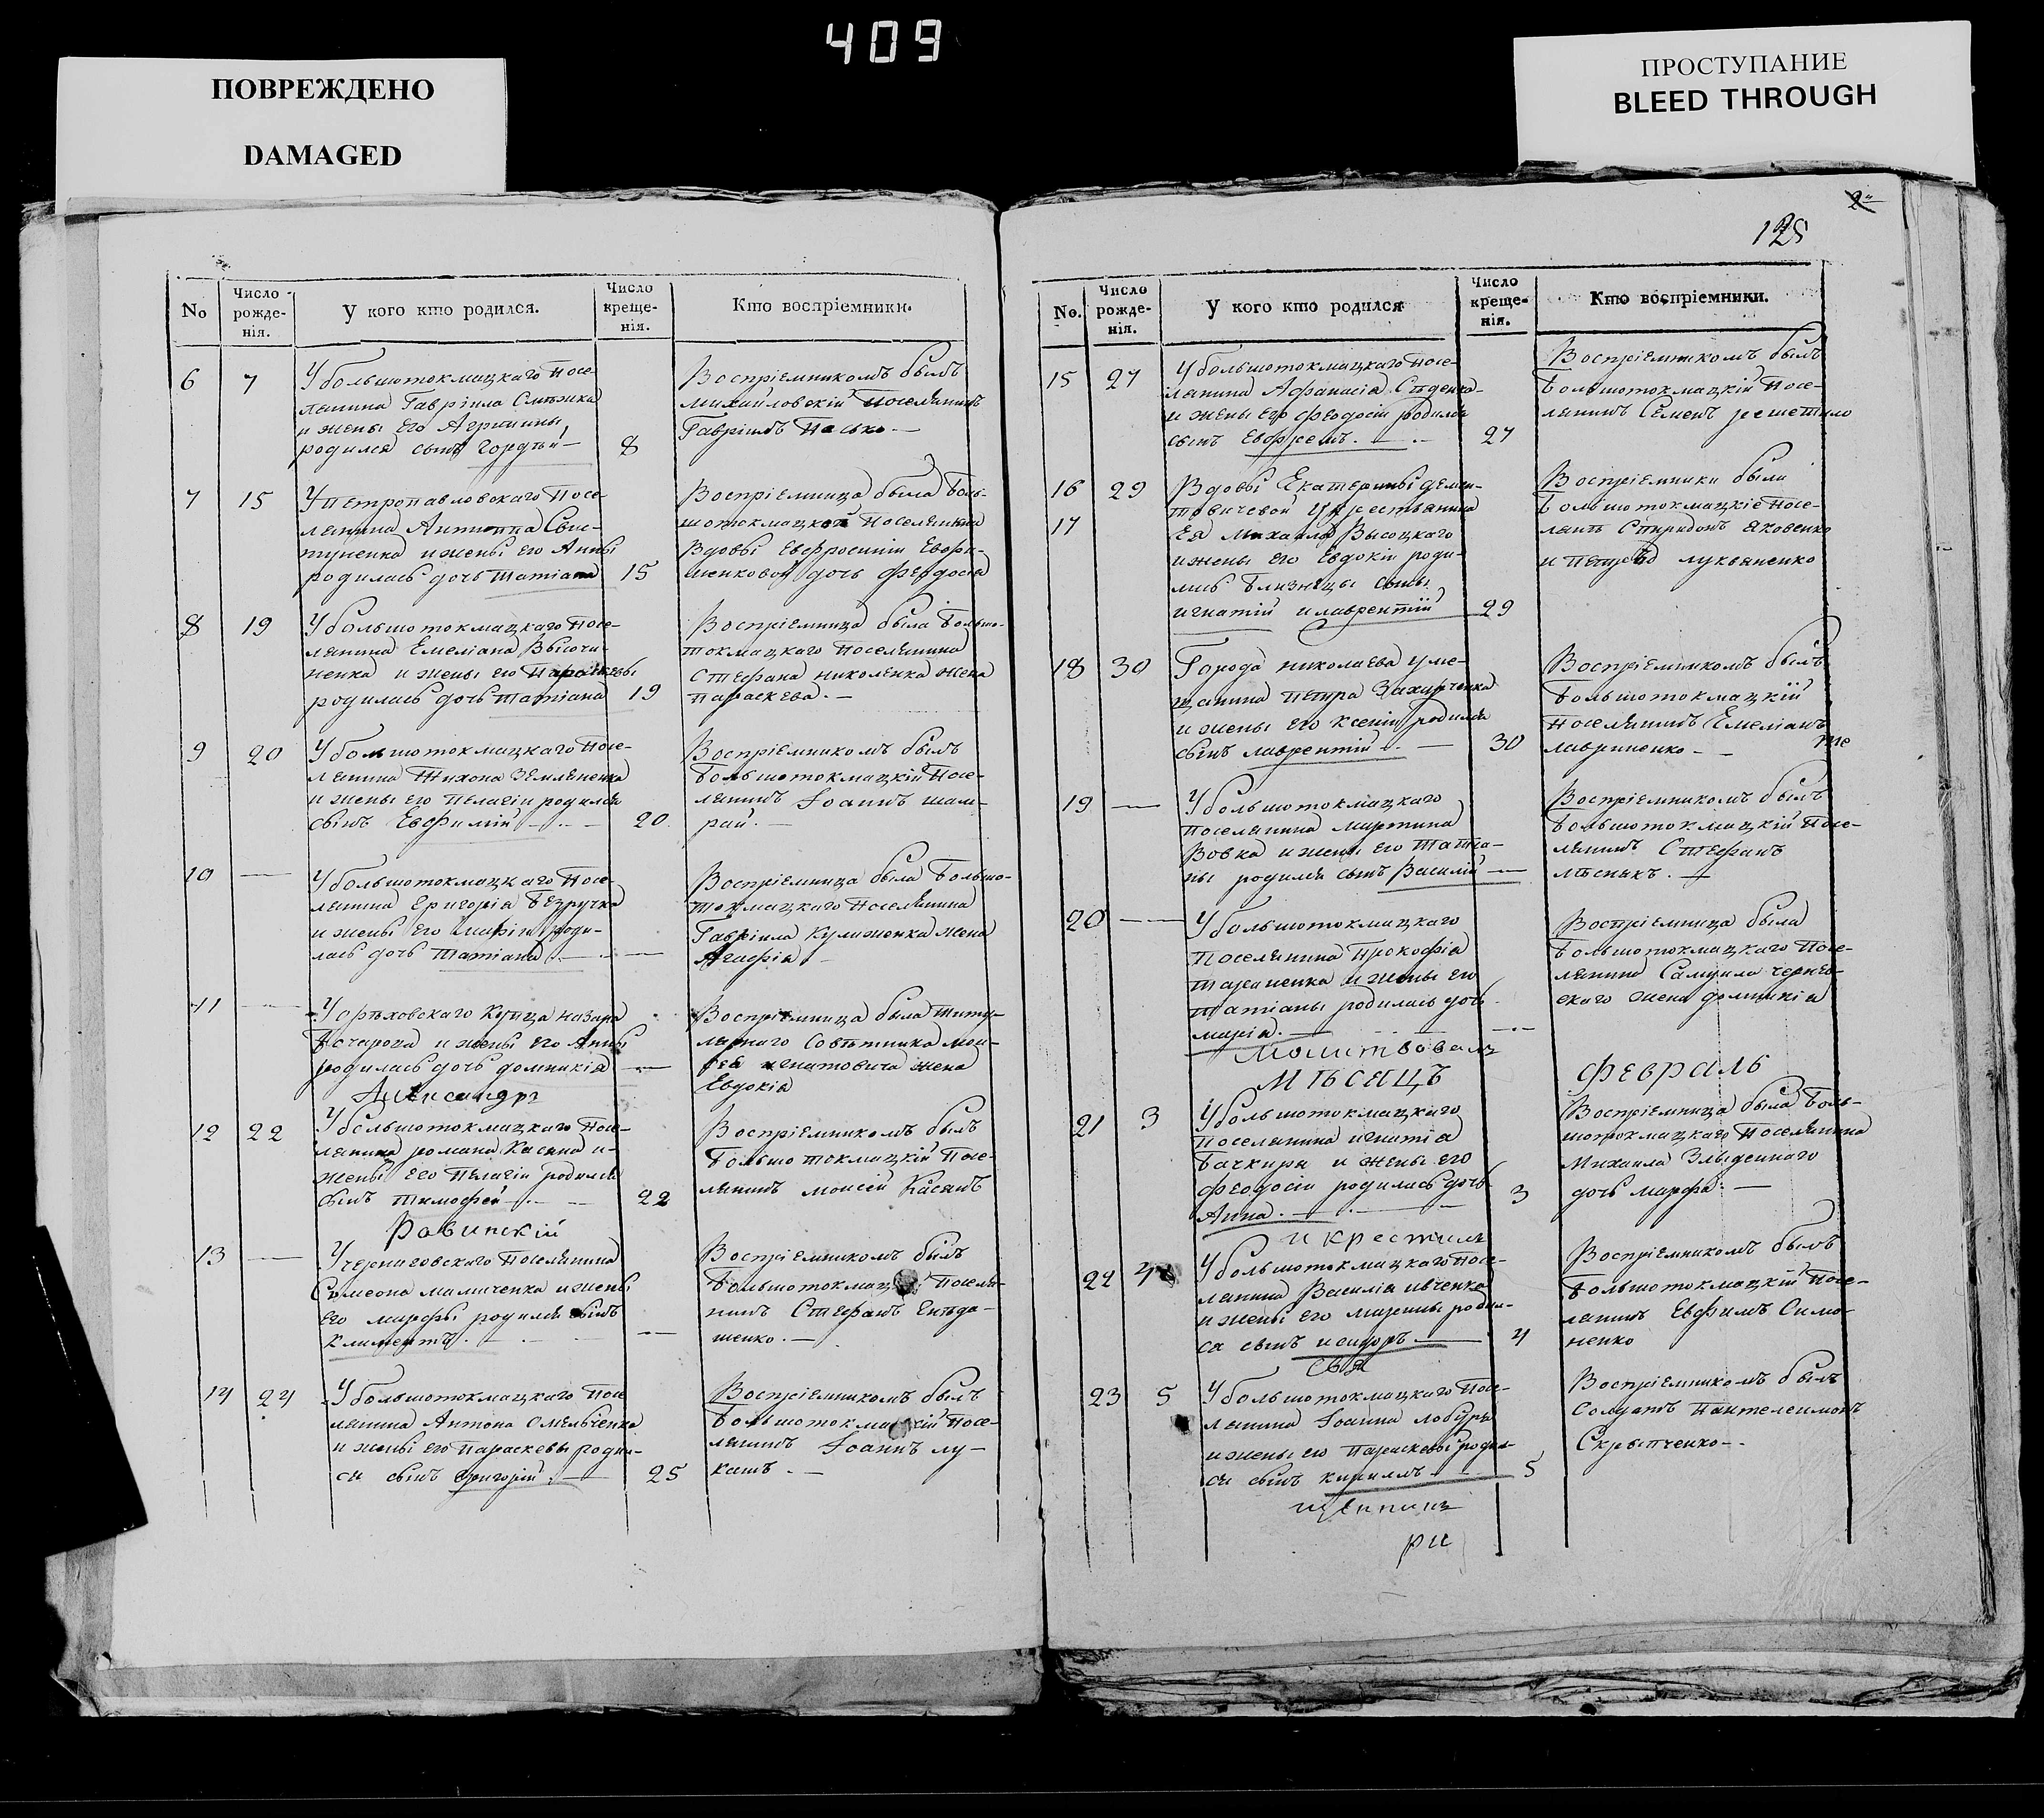 409
ПОВРЕЖДЕНО
DAMAGED
ПРОСТУПАНИЕ
BLEED THROUGH
No
Число рожде-нія.
У кого кто родился.
Число креще-нія.
Кто воспріемники.
6 7 У большотокмацкаго посе-
лянина Гавріила
и жены его Агрипины
родился сынъ Гордѣй 8
Воспріемникомъ былъ
михайловскій поселянинъ
Гавріилъ Пасько
7 15 У петропавловскаго посе-
лянина Антиппа Сви-
стуненка и жены его Анны
родилась дочь татіана 15
Воспріемница была боль-
шотокмацкой поселянки
Вдовы Евфросиніи Евфи-
менковой дочь феодосіа
8 19 У большотокмацкаго посе-
лянина Емеліана Височи-
ненка и жены его Параскевы
родилась дочь татіана 19
Воспріемница была большо-
токмацкаго поселянина
Стефана николенка жена
параскева.
9 20 У большотокмацкаго посе-
лянина Тихона Земляненка
и жены его пелагіи родился
сынъ Евфимій 20
Воспріемникомъ былъ
большотокмацкій посе-
лянинъ Іоаннъ шам-
рай.
10 — У большотокмацкаго посе-
лянина григоріа безручка
и жены его маріи роди-
лась дочь татіана —
Воспріемница была большо-
токмацкаго поселянина
Гавріила Кулиженка жена
Агафіа
11 — У орѣховскаго купца назара
и жены его Анны
родилась дочь домникіа —
Александръ
Воспріемница была титу-
лярнаго Совѣтника мои-
сеа игнатовича жена
Евдокіа
12 22 У большотокмацкаго посе-
лянина романа Касяна и
жены его Пелагіи родился
сынъ тимофей 22
Равинскій
Воспріемникомъ былъ
большотокмацкій посе-
лянинъ моисей Касянъ
13 — У черниговскаго поселянина
Симеона мамченка и жены
его марфы родился сынъ
Климентъ. —
Воспріемникомъ былъ
большотокмацкій поселя-
нинъ Стефанъ
шенко.
14 24 У большотокмацкаго посе
лянина Антона Омельченка
и жены его параскевы роди-
ся сынъ григорій. 25
Воспріемникомъ былъ
большотокмацкій посе-
лянинъ Іоаннъ лу-
кашъ.
2
125
No.
Число рожде-нія.
У кого кто родился
Число креще-нія.
Кто воспріемники.
15 27 У большотокмацкаго посе-
лянина Афанасіа
и жены его феодосіи родился
сынъ Евфремъ. 27
Воспріемникомъ былъ
большотокмацкій посе-
лянинъ Семенъ решетило
16 29 Вдовы Екатерины деми-
товичевой у крестьянина
17 Еа михаила Высоцкаго
и жены его Евдокіи роди-
лись близнецы сыны
игнатій и лаврентій 29
Воспріемники были
большотокмацкіе посе-
ляне Спиридонъ Яковенко
и лукьяненко
18 30 Города николаева у ме-
щанина петра Захарченка
и жены его ксеніи родился
сынъ лаврентій 30
Воспріемникомъ былъ
большотокмацкій
поселянинъ Емеліанъ
лавриненко
19 — У большотокмацкаго
поселянина мартина
Вовка и жены его татіа-
ны родился сынъ Василій —
Воспріемникомъ былъ
большотокмацкій посе-
лянинъ Стефанъ
лѣснякъ.
20 — У большотокмацкаго
поселянина Прокофіа
тараненка и жены его
татіаны родилась дочь
маріа. —
молитвовалъ
Воспріемница была
большотокмацкаго посе-
лянина Самуила чернев-
скаго жена домникіа
МѢСЯЦЪ февраль
21 3 У большотокмацкаго
поселянина игнатіа
бачкиры и жены его
феодосіи родилась дочь
Анна. 3
и крестилъ
Воспріемница была боль-
шотокмацкаго поселянина
Михаила Злыденнаго
дочь марфа.
22 4 У большотокмацкаго посе-
лянина Василіа ивченка
и жены его марины роди-
ся сынъ исидоръ 4
Свя
Воспріемникомъ былъ
большотокмацкій посе-
лянинъ Евфимъ Симо-
ненко
23 5 У большотокмацкаго посе-
лянина Іоанна лобуры
и жены его параскевы роди-
ся сынъ кириллъ 5
щенник
Воспріемникомъ былъ
Солдатъ Пантелеимонъ
Скрыпченко.